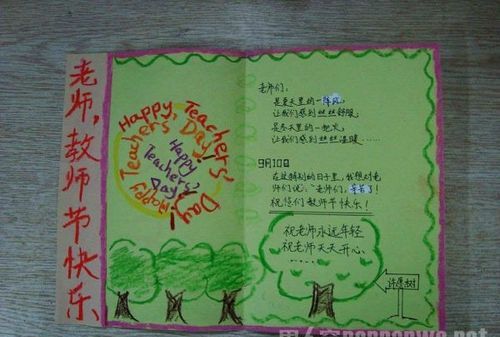 老师,教师节快乐
Happy Teachers' Day!
Happy Teachers' Day!
Happy Teachers' Day!
老师们:
是夏天里的一阵风,
让我们感到丝丝舒服,
是冬天里的一把火,
让我们感到丝丝温暖……
9月10日
在这特别的日子里,我想对老
师们说:“老师们,辛苦了!
祝您们教师节快乐!
祝老师永远年轻
祝老师天天开心
……
许愿树